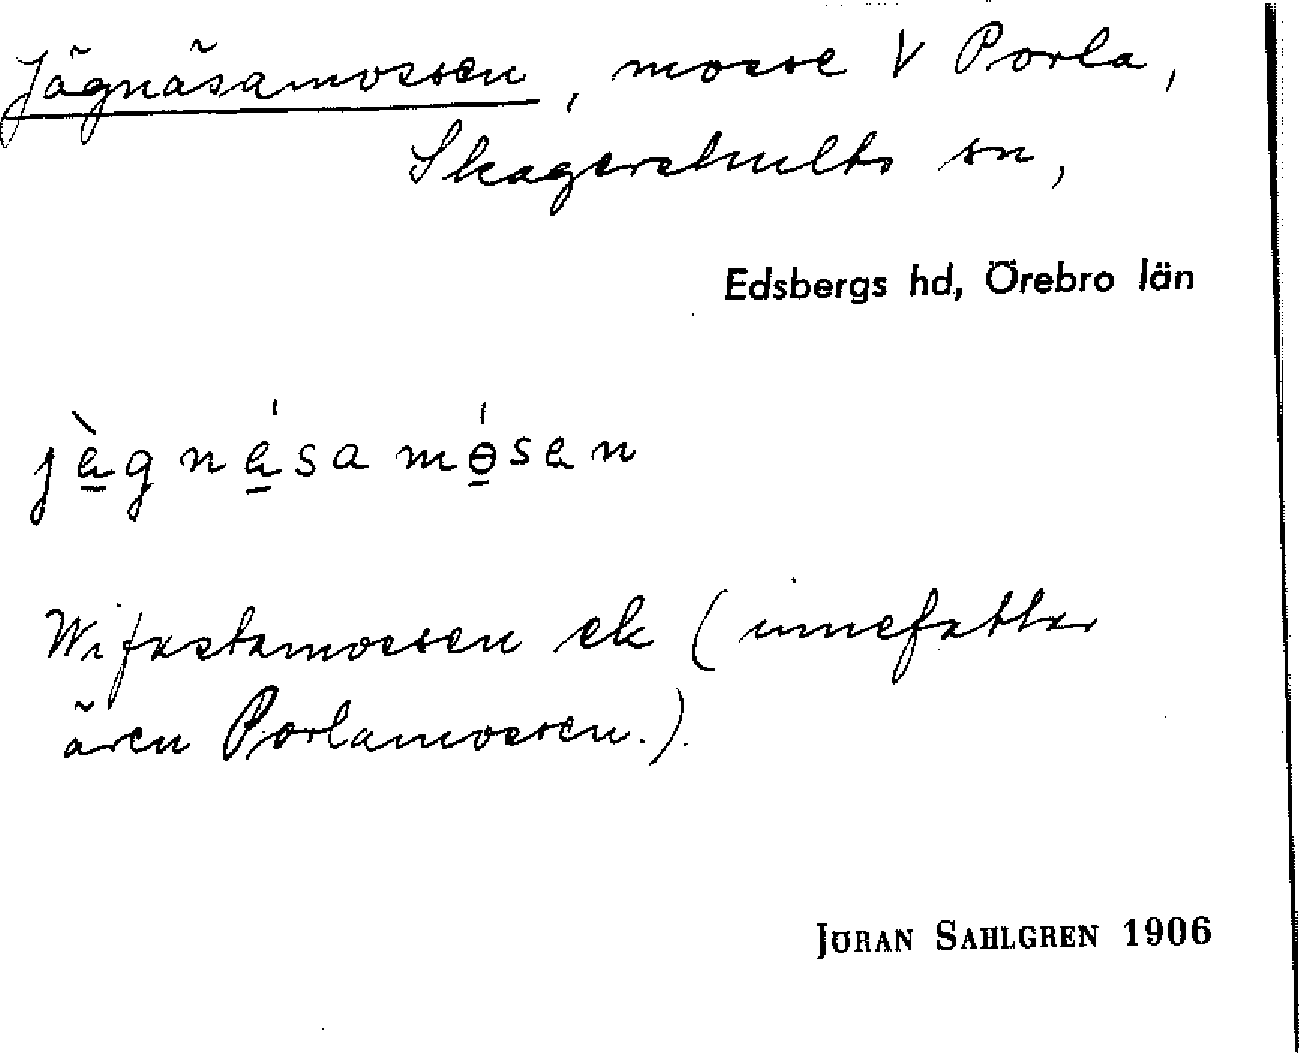 Jägnäsamossen, mosse V Porla,
Skagershults sn,
Edsbergs hd, Örebro län
Wifastamossen ek (innefattar
även Porlamossen.).
JÖRAN SAHLGREN 1906